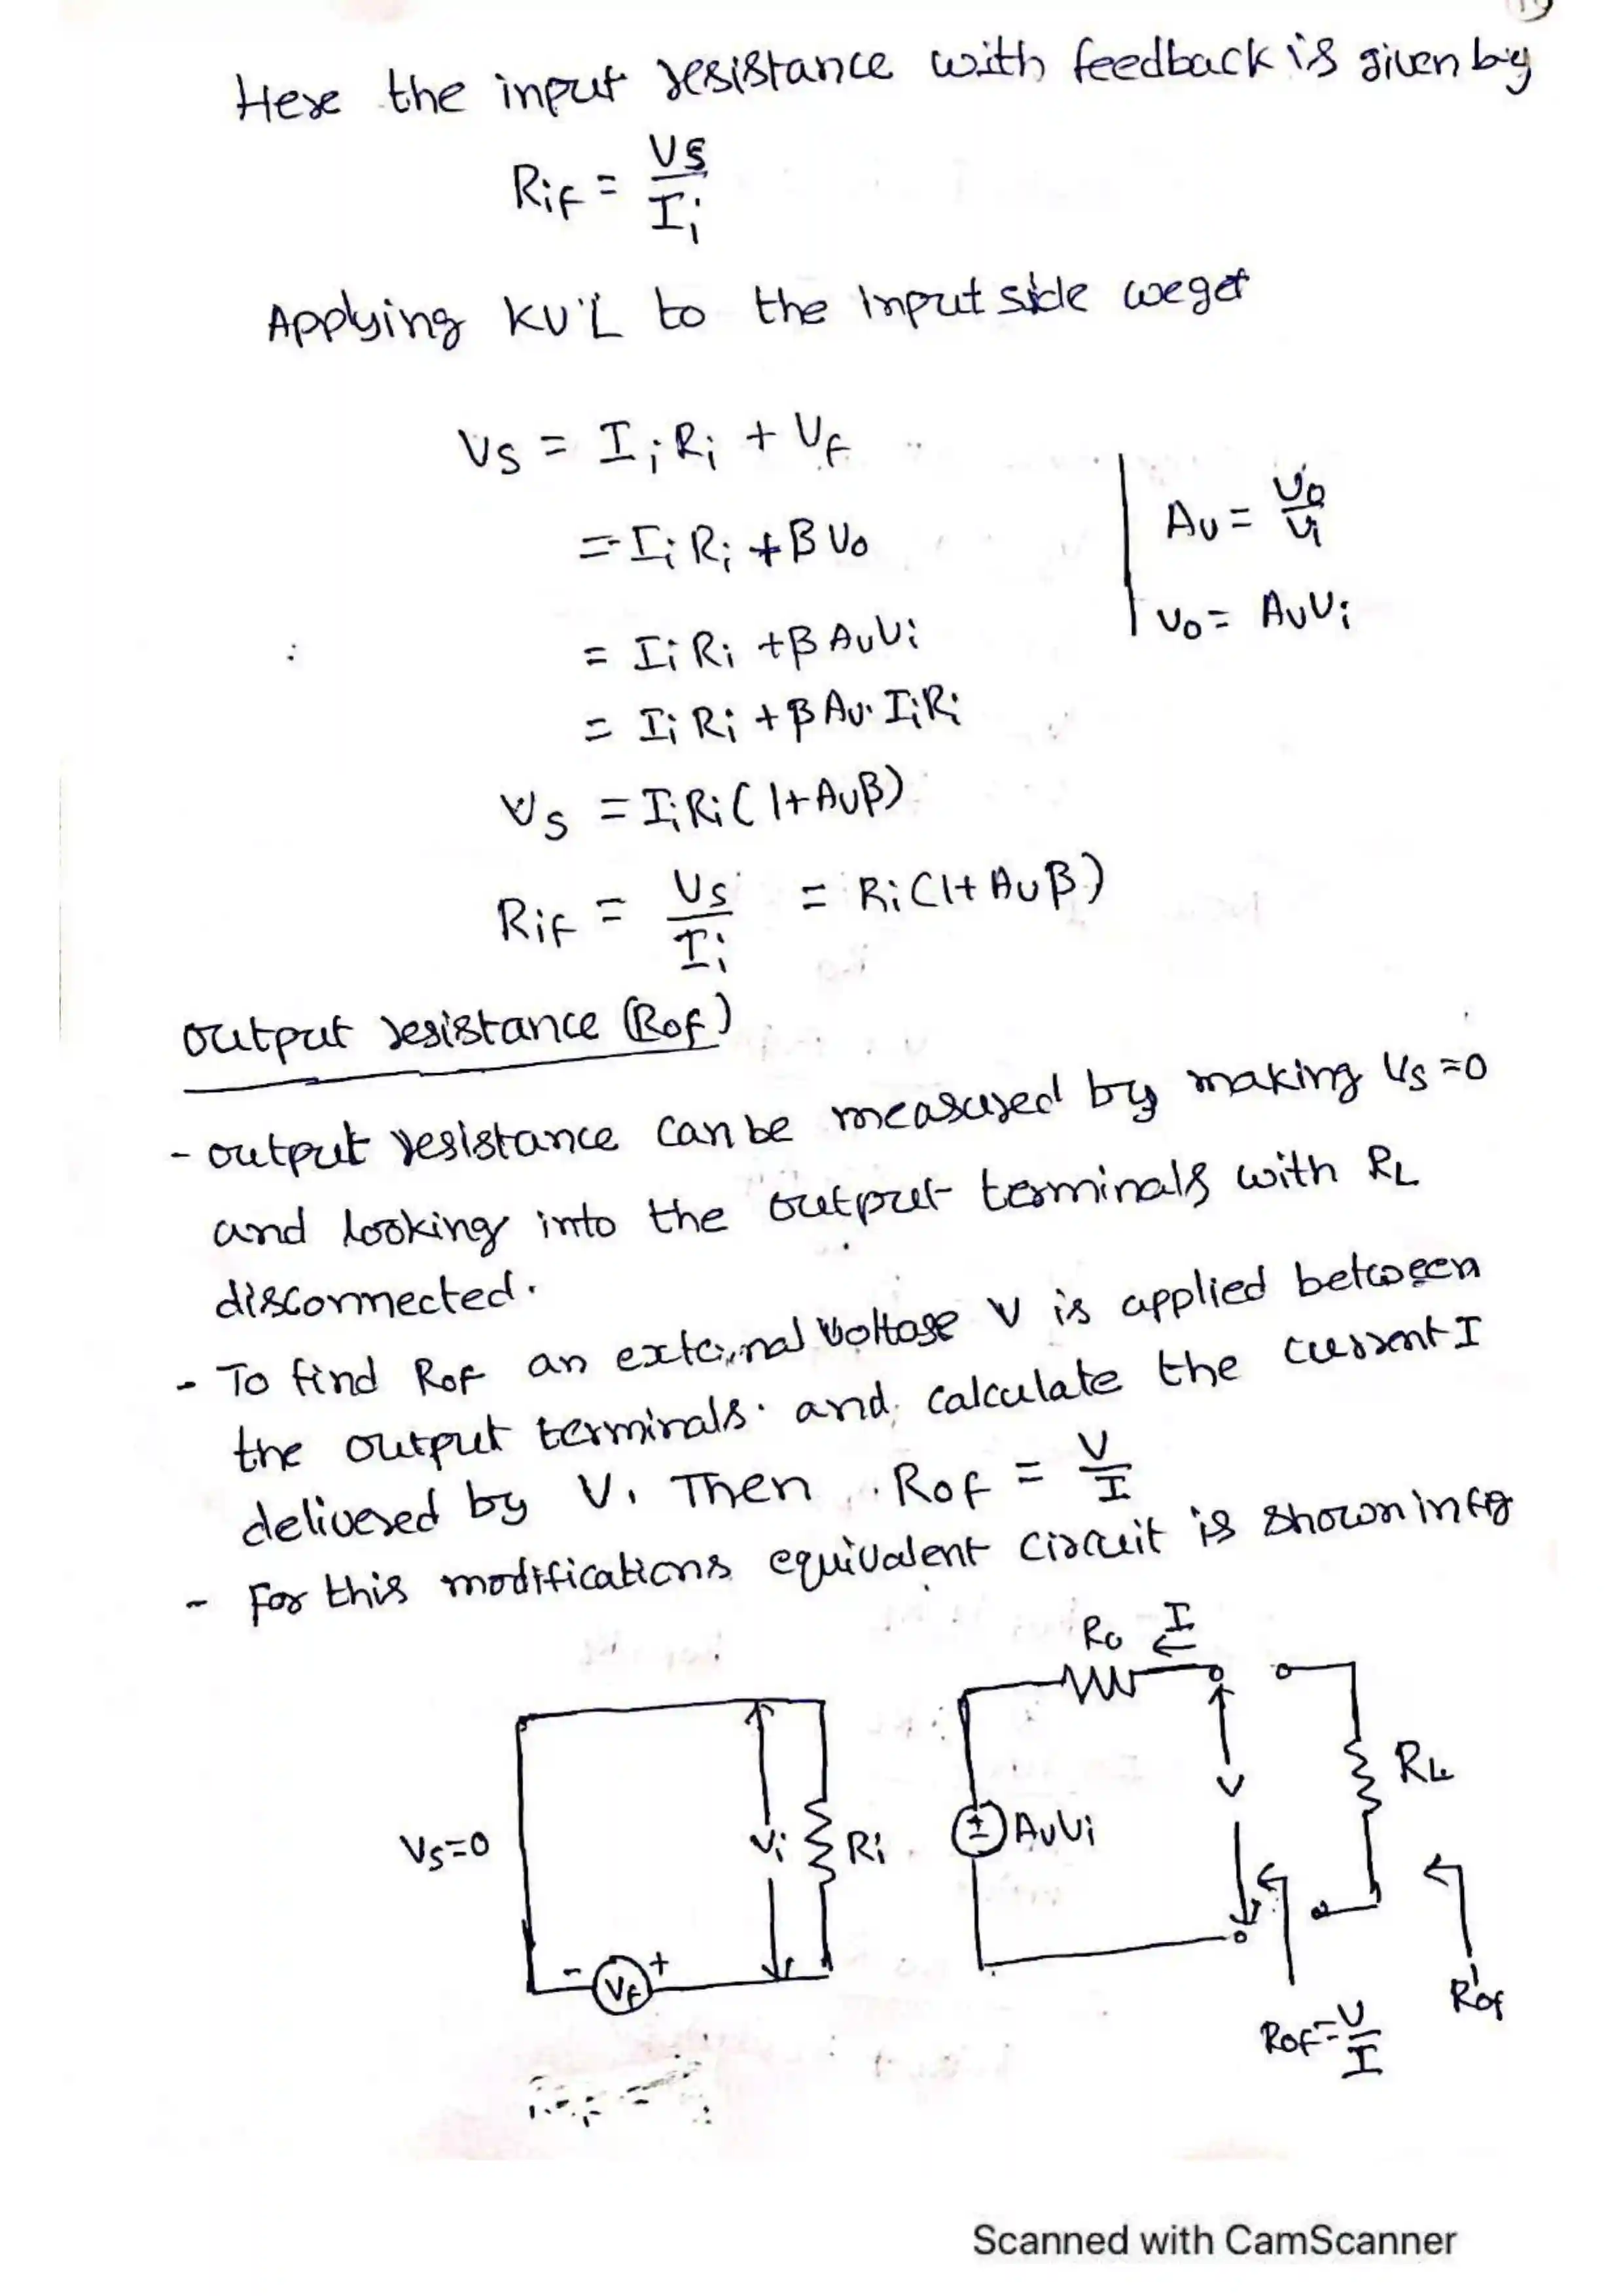 Here the input resistance with feedback is given by
Rif = Vs / Ii
Applying KVL to the input side we get
Vs = Ii Ri + Vf
= Ii Ri + β Vo
Av = Vo / Vi
= Ii Ri + β Av Vi
Vo = Av Vi
= Ii Ri + β Av. Ii Ri
Vs = Ii Ri ( 1 + Av β )
Rif = Vs / Ii = Ri ( 1 + Av β )
output resistance (Rof)
- output resistance can be measured by making Vs = 0
and looking into the output terminals with RL
disconnected.
- To find Rof an external voltage V is applied between
the output terminals. and calculate the current I
delivered by V. Then Rof = V / I
- For this modifications equivalent circuit is shown in fig
Ro I
RL
V
Vs = 0
Vi
Ri
+
-
Av Vi
- Vf +
R'of
Rof = V / I
Scanned with CamScanner